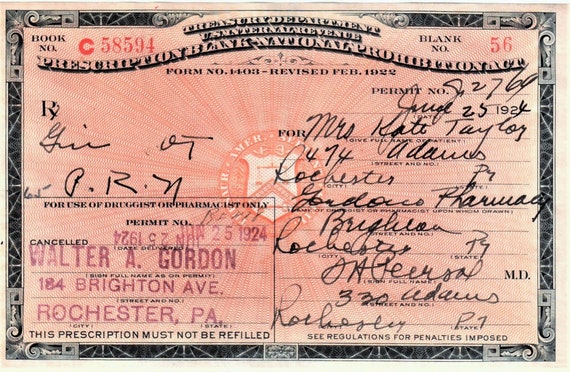 TREASURY DEPARTMENT
U.S. INTERNAL REVENUE
BOOK NO. C 58594
BLANK NO. 56
PRESCRIPTION BLANK-NATIONAL PROHIBITION ACT
FORM NO. 1403-REVISED FEB. 1922
PERMIT NO.
℞
June 25 1924
(DATE)
Gin
P.R.N
FOR Mrs Kate Taylor
(GIVE FULL NAME OF PATIENT)
474 Adams
(STREET AND NO.)
Rochester Pa
(CITY) (STATE)
Gordons Pharmacy
(NAME OF DRUGGIST OR PHARMACIST UPON WHOM DRAWN)
Brighton
(STREET AND NO.)
Rochester Pa
(CITY) (STATE)
M.D.
(SIGN FULL NAME)
330 Adams
(STREET AND NO.)
Rochester Pa
(CITY) (STATE)
FOR USE OF DRUGGIST OR PHARMACIST ONLY
PERMIT NO.
CANCELLED JUN 25 1924
(DATE DELIVERED)
WALTER A. GORDON
(SIGN FULL NAME AS ON PERMIT)
184 BRIGHTON AVE.
(STREET AND NO.)
ROCHESTER, PA.
(CITY) (STATE)
THIS PRESCRIPTION MUST NOT BE REFILLED
SEE REGULATIONS FOR PENALTIES IMPOSED